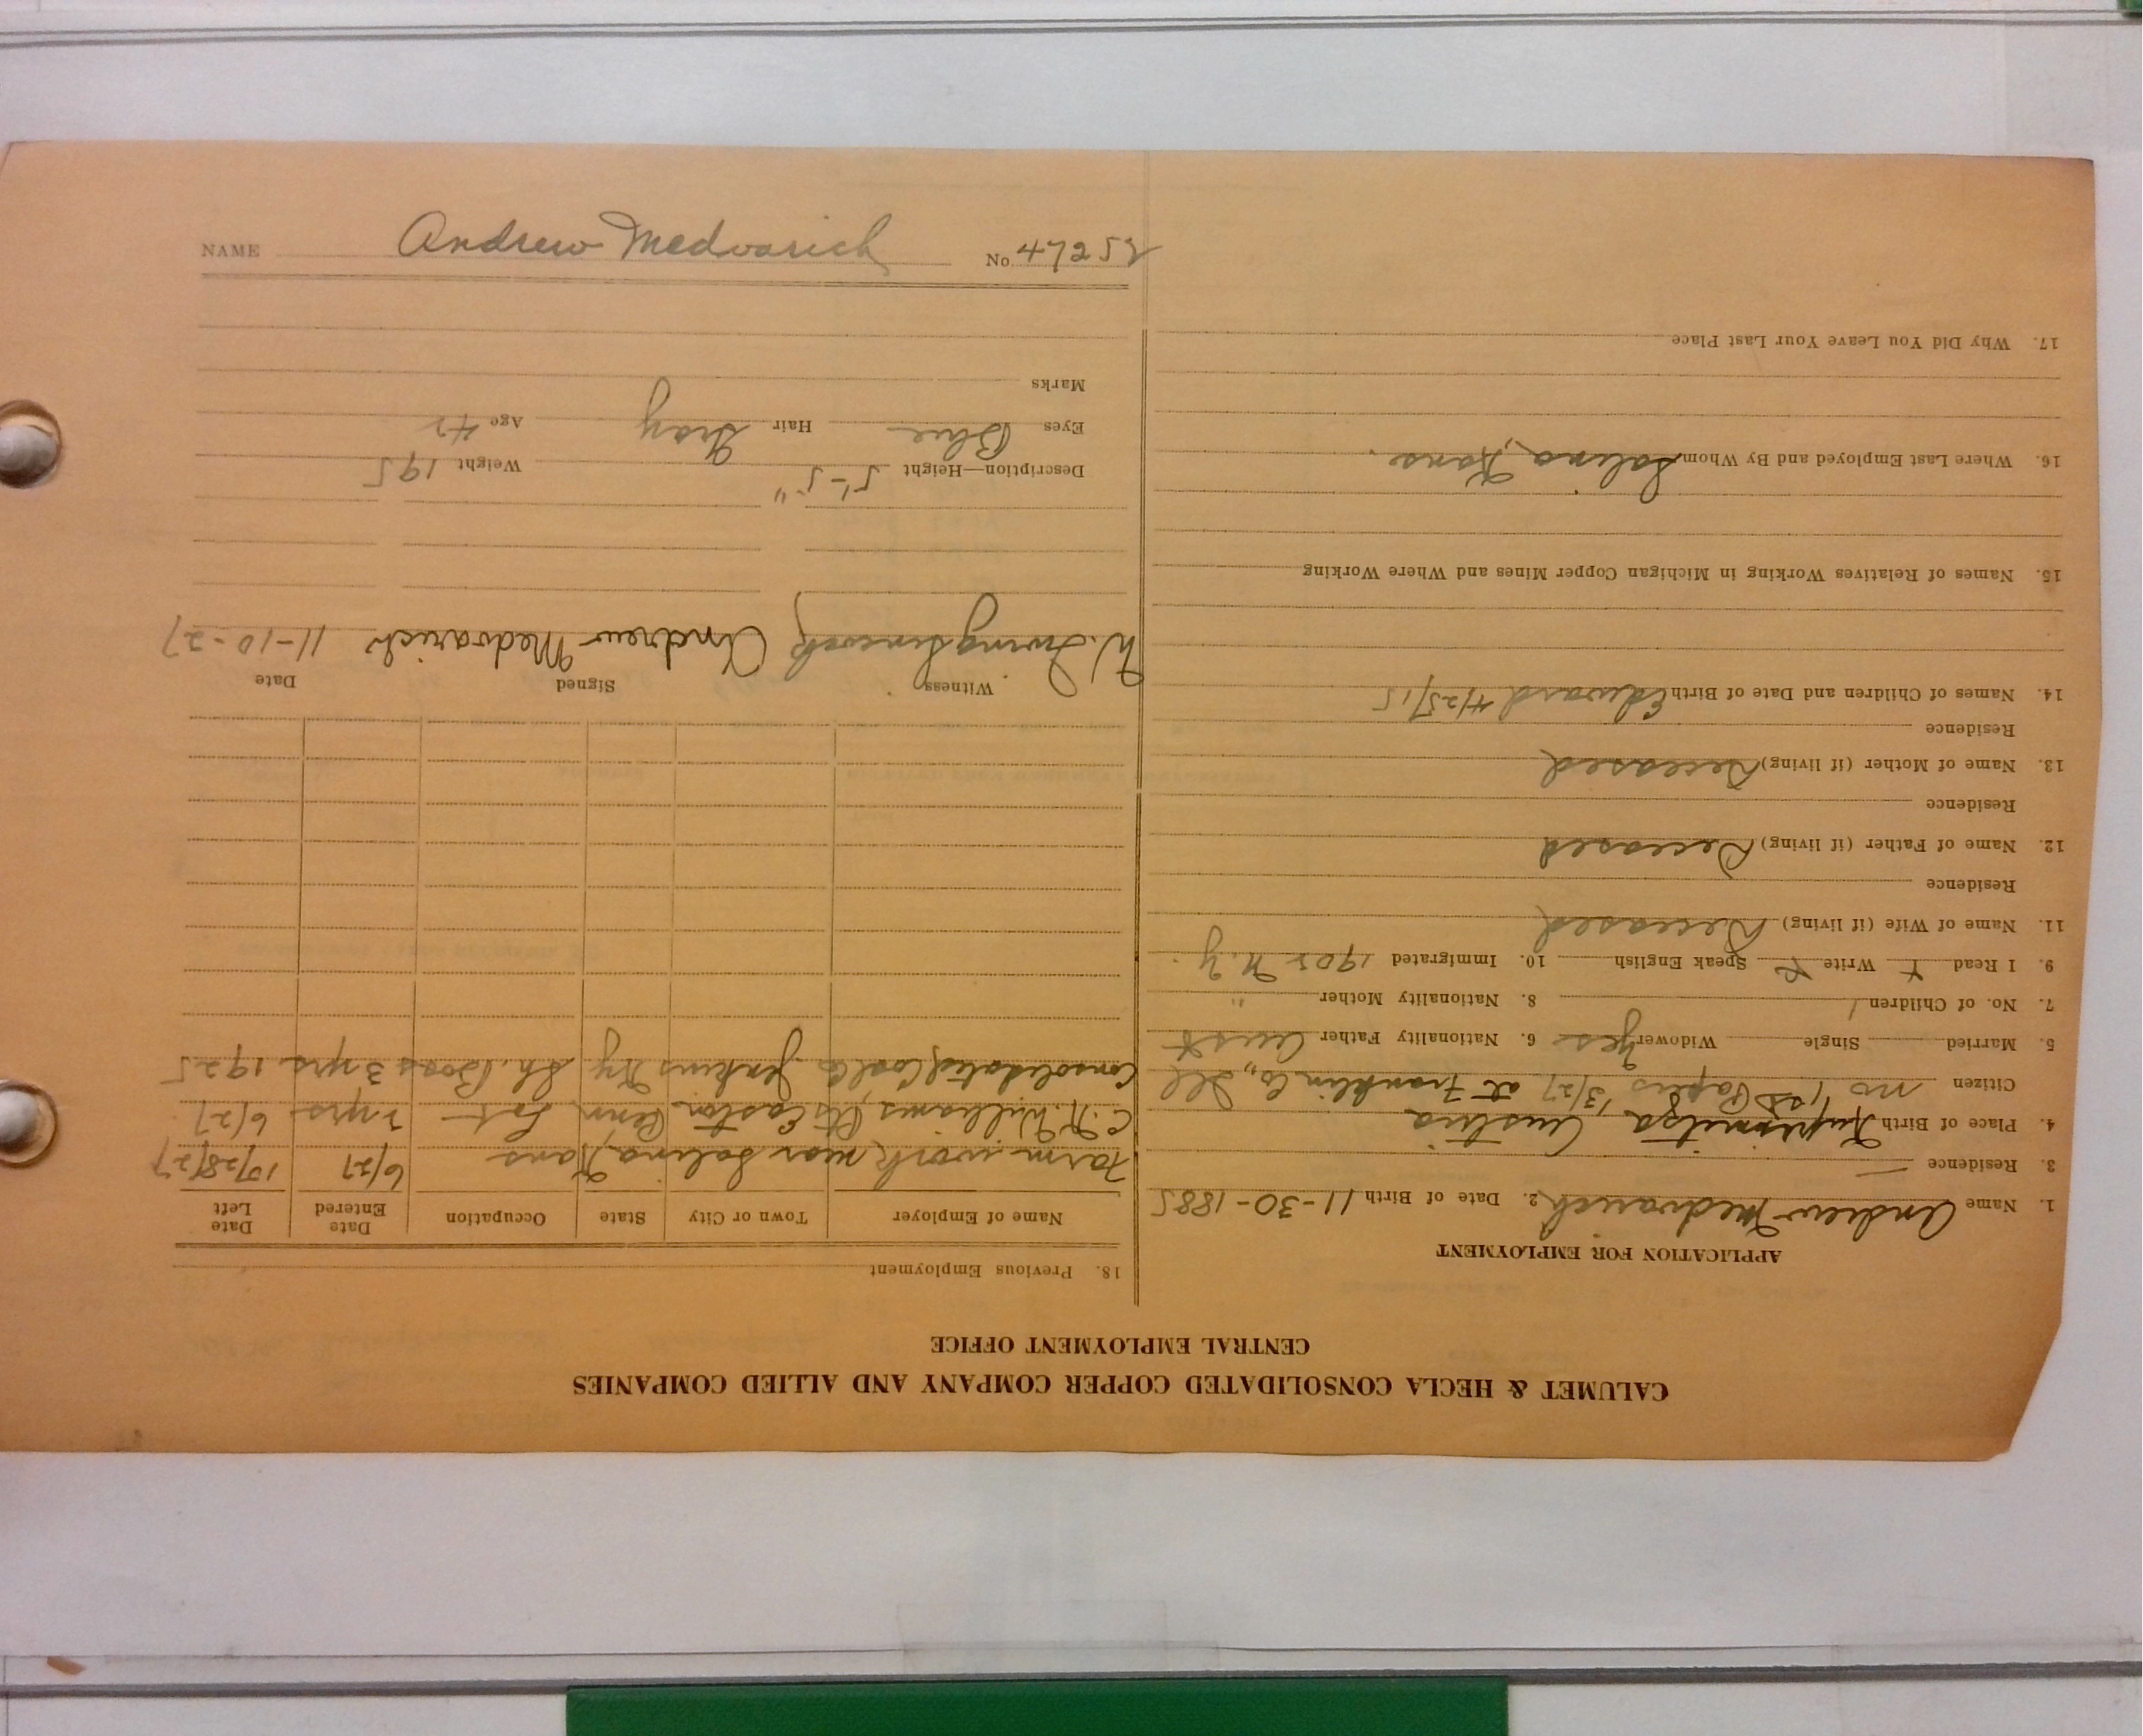 NAME Andrew Medvarich No. 47252
CALUMET & HECLA CONSOLIDATED COPPER COMPANY AND ALLIED COMPANIES
CENTRAL EMPLOYMENT OFFICE
APPLICATION FOR EMPLOYMENT
1. Name Andrew Medvarich 2. Date of Birth 11-30-1885
3. Residence —
4. Place of Birth Austria
Citizen no 1st Papers 3/27 at Franklin Co., Ill
5. Married Single Widower Yes 6. Nationality Father Aust
7. No. of Children 1 8. Nationality Mother "
9. I Read Write Speak English 10. Immigrated 1905 N.Y.
11. Name of Wife (if living) Deceased
Residence
12. Name of Father (if living) Deceased
Residence
13. Name of Mother (if living) Deceased
Residence
14. Names of Children and Date of Birth Edward 4/25/15
15. Names of Relatives Working in Michigan Copper Mines and Where Working
16. Where Last Employed and By Whom Salina, Kans.
17. Why Did You Leave Your Last Place
18. Previous Employment
Name of Employer Town or City State Occupation Date Entered Date Left
Farm work near Salina, Kans 6/27 10/28/27
C.H. Williams, Easton Penn 2 yrs 6/27
Consolidated Coal Co Jenkins Ky Sh. Boss 3 yrs. 1925
Witness Signed Date
W. Irving Andrew Medvarich 11-10-27
Description—Height 5'-5" Weight 195
Eyes Blue Hair Gray Age 42
Marks